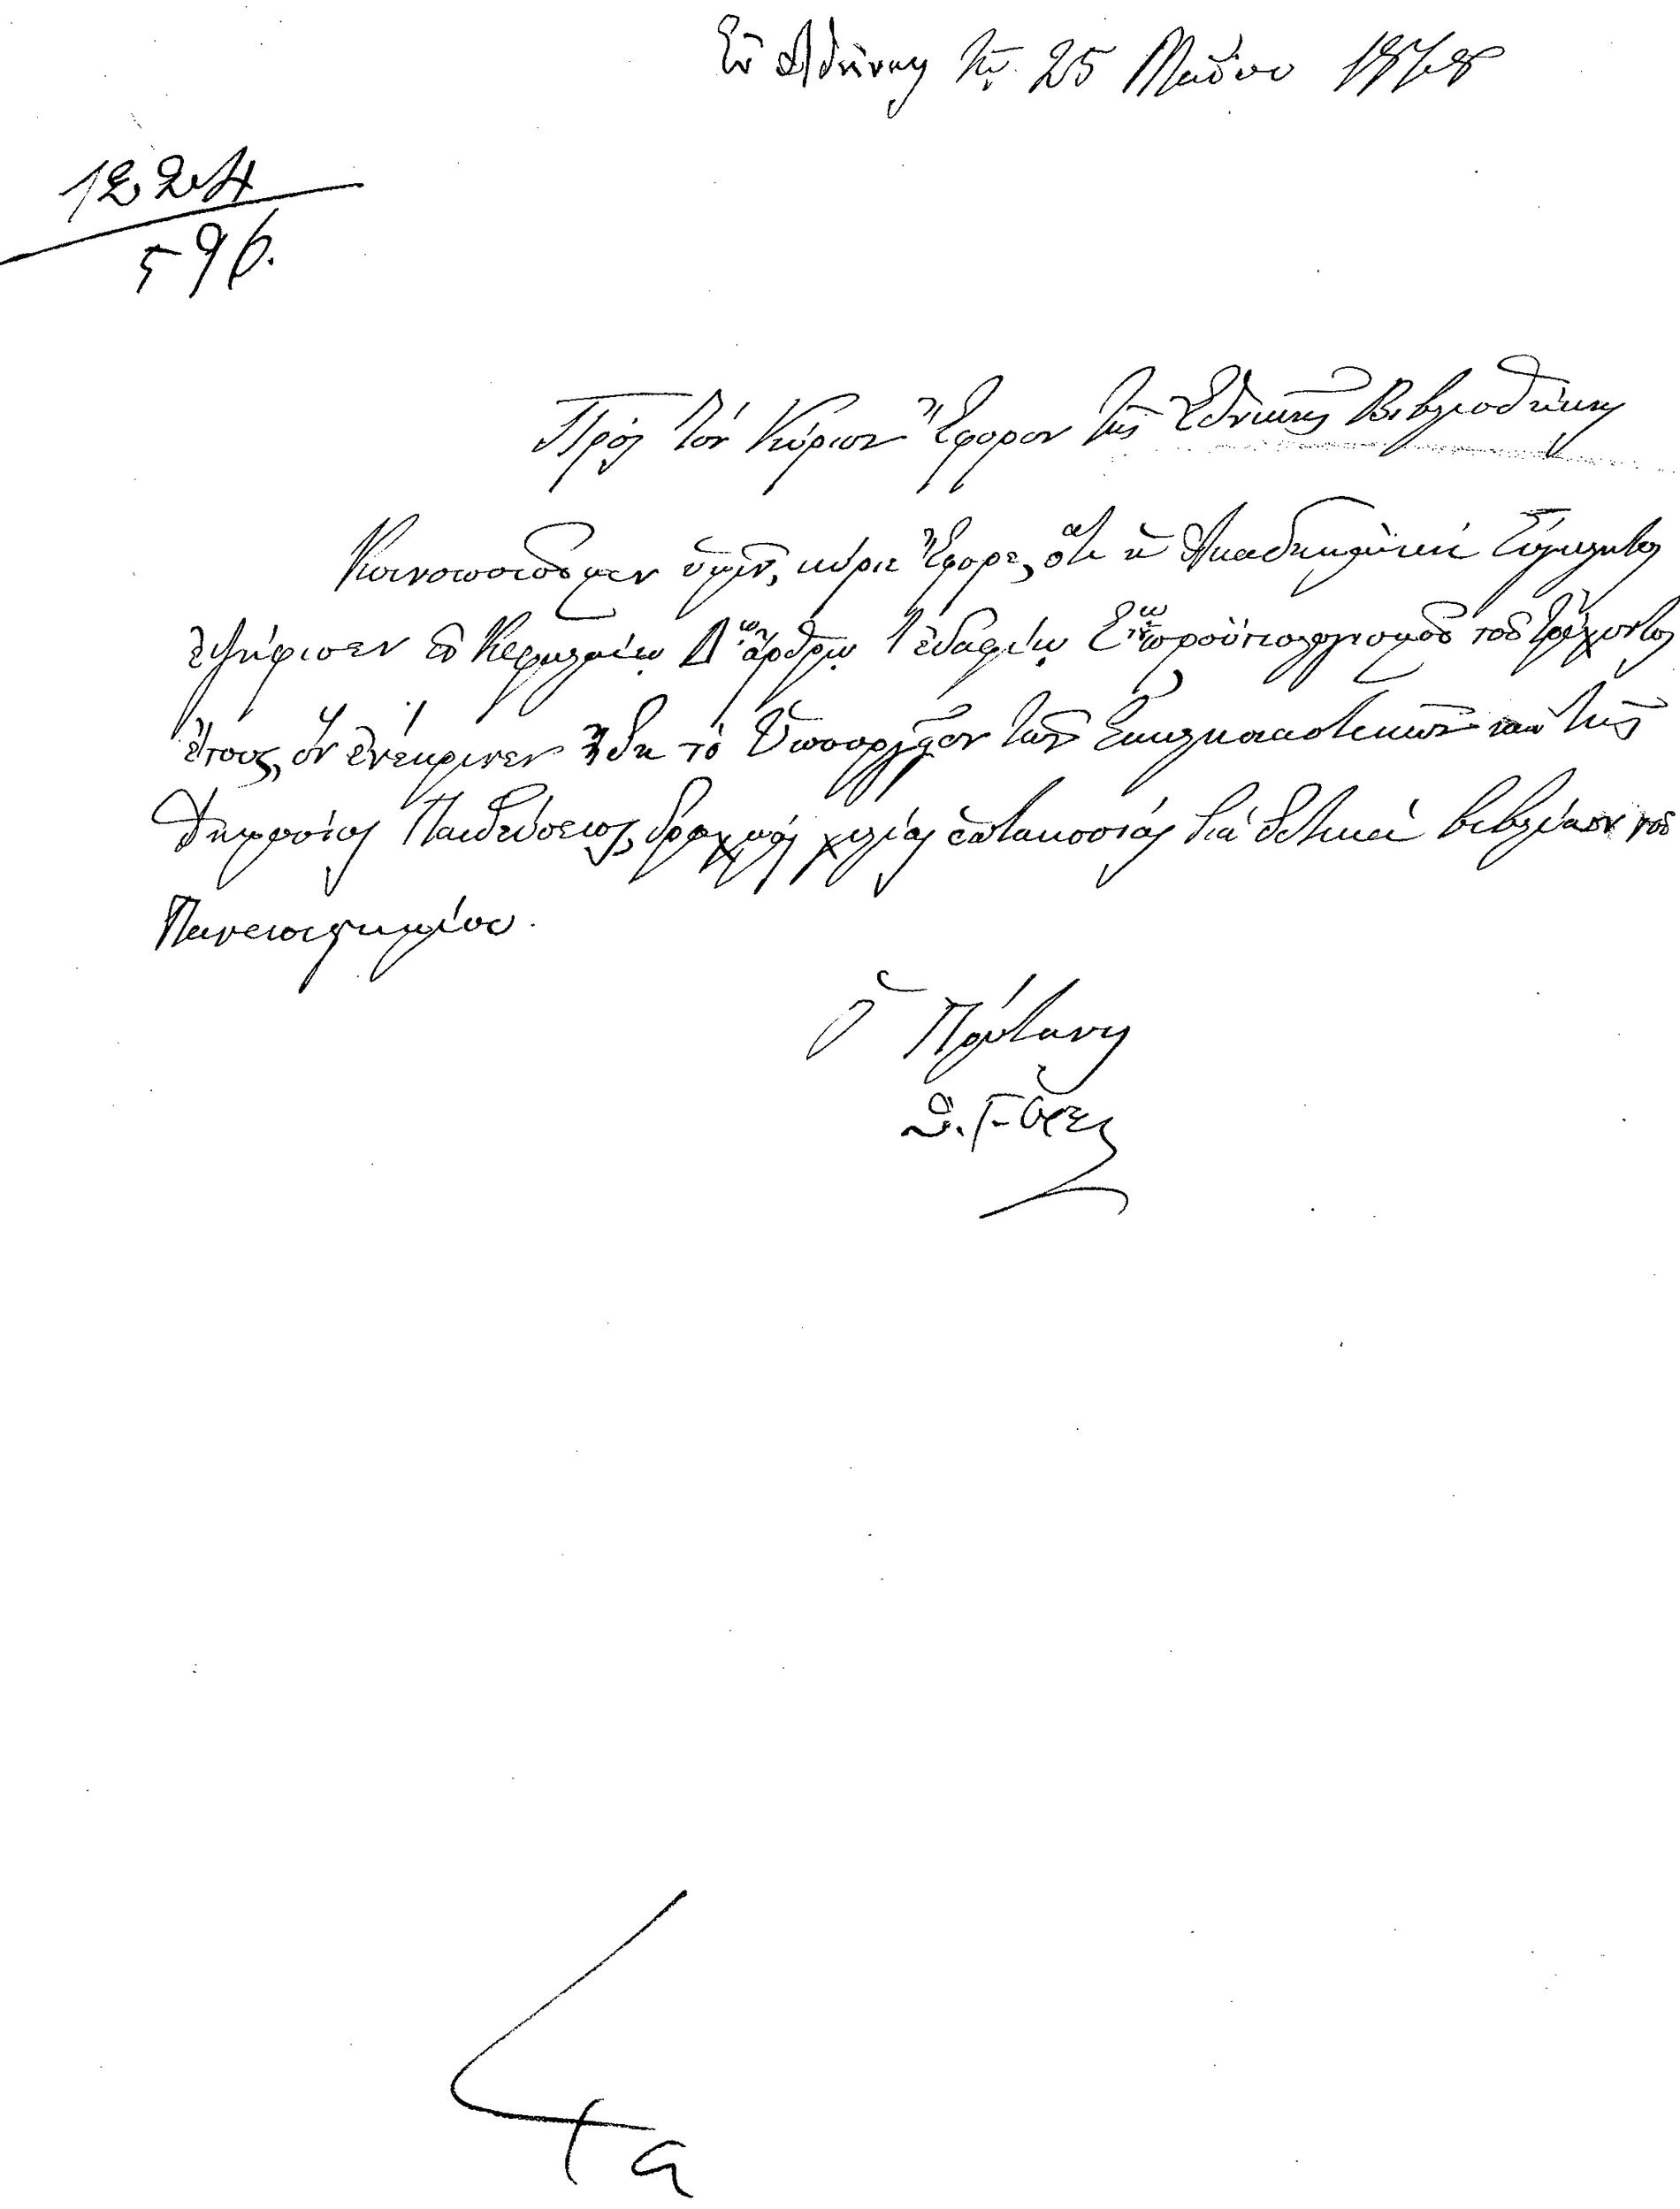 Ἐν Ἀθήναις τῇ 25 Μαΐου 1878
1224
596.
Πρὸς τὸν Κύριον Ἔφορον τῆς Ἐθνικῆς Βιβλιοθήκης
Κοινοποιοῦμεν ὑμῖν, κύριε Ἔφορε, ὅτι ἡ Ἀκαδημαϊκὴ Σύγκλητος
ἐψήφισεν ἐν Κεφαλαίῳ Δῳ ἄρθρῳ 1 ἐδαφίῳ τοῦ προϋπολογισμοῦ τοῦ τρέχοντος
ἔτους, ὃν ἐνέκρινεν ἤδη τὸ Ὑπουργεῖον τῶν Ἐκκλησιαστικῶν καὶ τῆς
Δημοσίας Παιδεύσεως, δραχμὰς χιλίας ἑπτακοσίας διὰ δετικὰ βιβλίων τοῦ
Πανεπιστημίου.
Ὁ Πρύτανις